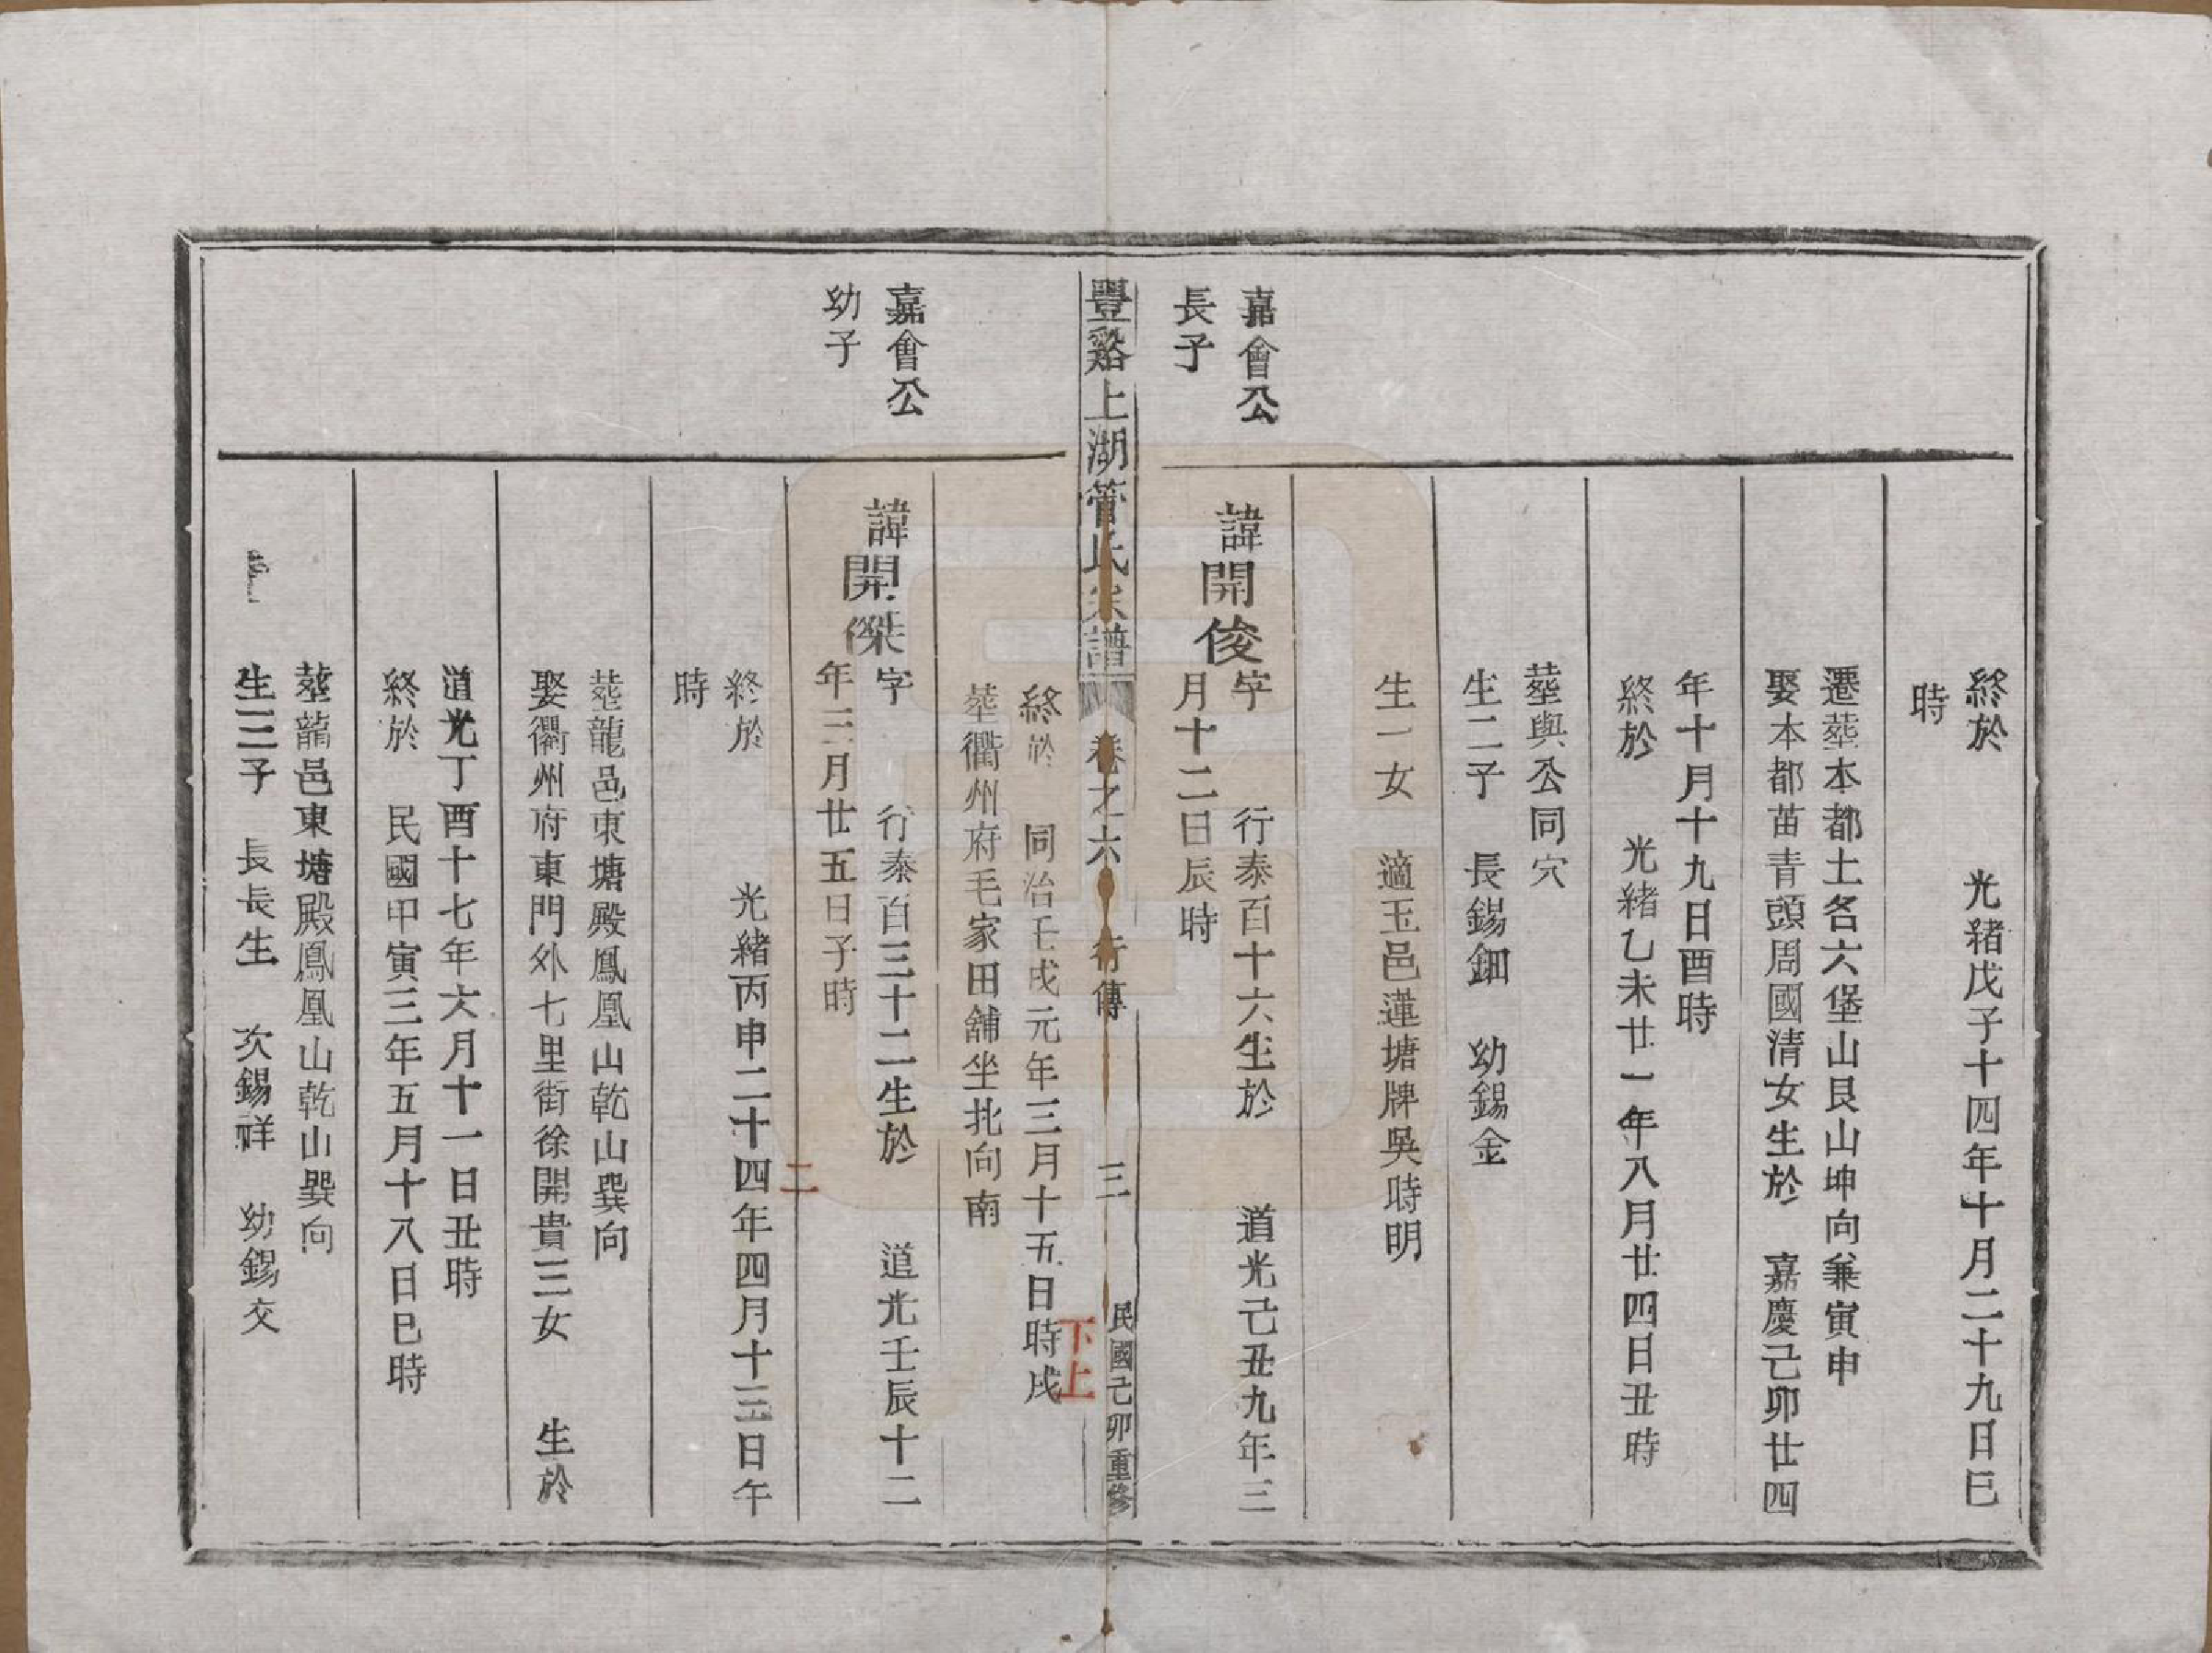 終於　光緒戊子十四年十月二十九日巳
時
遷塟本都土名六堡山艮山坤向兼寅申
娶本都苗青頭周國清女生於　嘉慶己卯廿四
年十月十九日酉時
終於　光緒乙未廿一年八月廿四日丑時
塟與公同穴
生二子　長錫鈿　幼錫金
生一女　適玉邑蓮塘牌吳時明
嘉會公
長子
諱開俊
字　行泰百十六生於　道光己丑九年三
月十二日辰時
豐谿上湖管氏宗譜　卷之六　行傳　三　民國己卯重修
終於　同治壬戌元年三月十五日時戌
下上
塟衢州府毛家田舖坐北向南
嘉會公
幼子
諱開傑
字　行泰百三十二生於　道光壬辰十二
年三月廿五日子時
二
終於　光緒丙申二十四年四月十三日午
時
塟龍邑東塘殿鳳凰山乾山巽向
娶衢州府東門外七里街徐開貴三女　生於
道光丁酉十七年六月十一日丑時
終於　民國甲寅三年五月十八日巳時
塟龍邑東塘殿鳳凰山乾山巽向
生三子　長長生　次錫祥　幼錫交